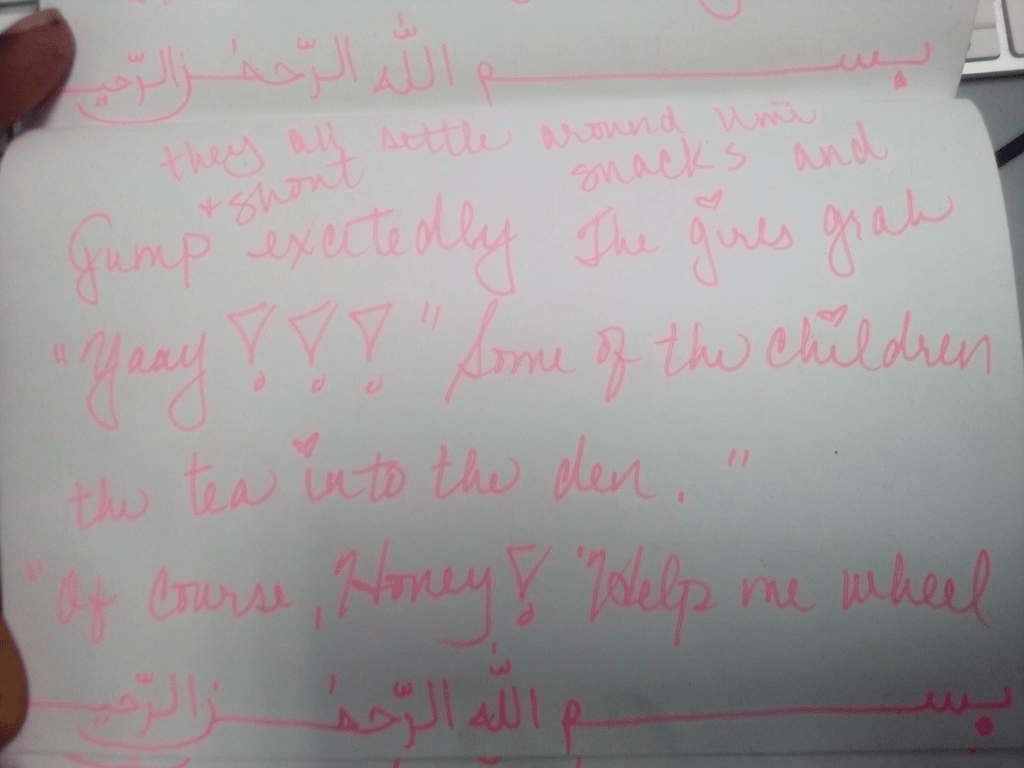 بســـــم الله الرّحمٰن الرّحيم
they all settle around Umi
+ shout snacks and
Jump excitedly The girls grab
"Yaay!!!" Some of the children
the tea into the den."
"Of course, Honey! Help me wheel
بســـــم الله الرّحمٰن الرّحيم